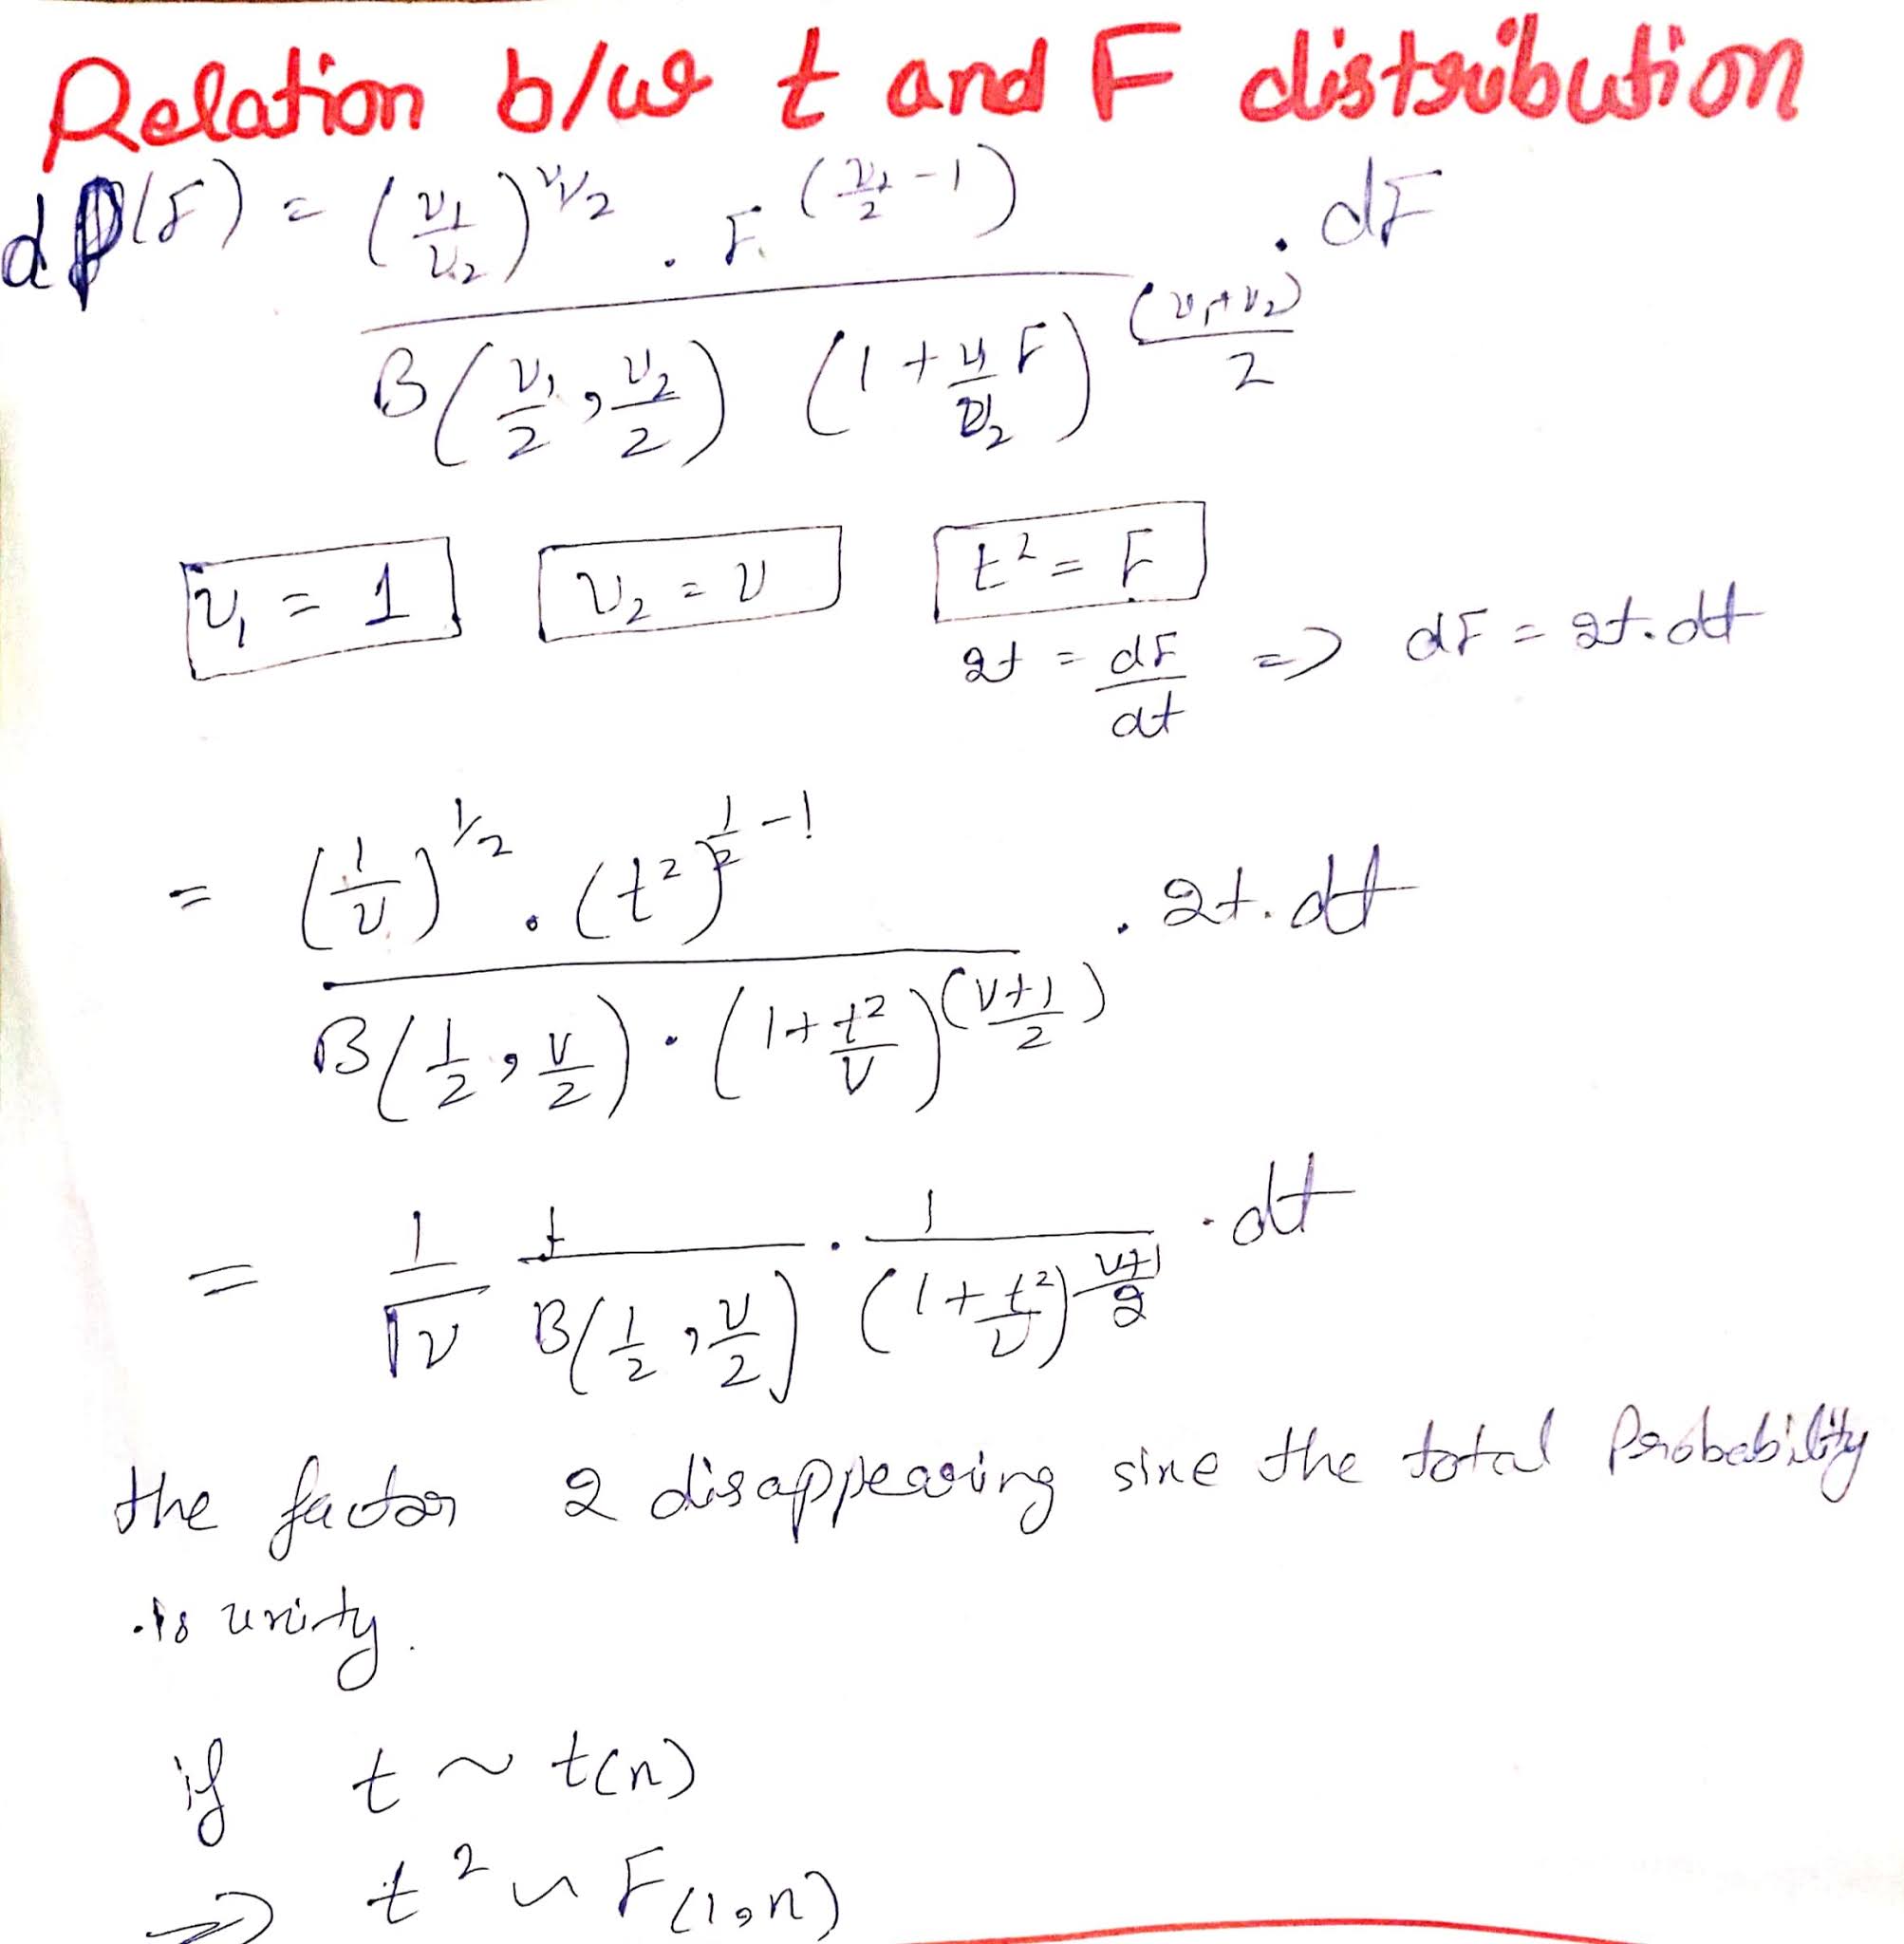 Relation b/w t and F distribution
dP(F) = (ν₁/ν₂)^(ν₁/2) . F^(ν₁/2 - 1) / B(ν₁/2, ν₂/2) (1 + ν₁/ν₂ F)^((ν₁+ν₂)/2) . dF
ν₁ = 1 ν₂ = ν t² = F
2t = dF/dt => dF = 2t.dt
= (1/ν)^(1/2) . (t²)^(1/2 - 1) / B(1/2, ν/2) . (1 + t²/ν)^((ν+1)/2) . 2t.dt
= 1/√ν 1/B(1/2, ν/2) . 1/(1 + t²/ν)^((ν+1)/2) . dt
the factor 2 disappearing sine the total Probability
is unity.
if t ~ t(n)
=> t² ~ F(1,n)